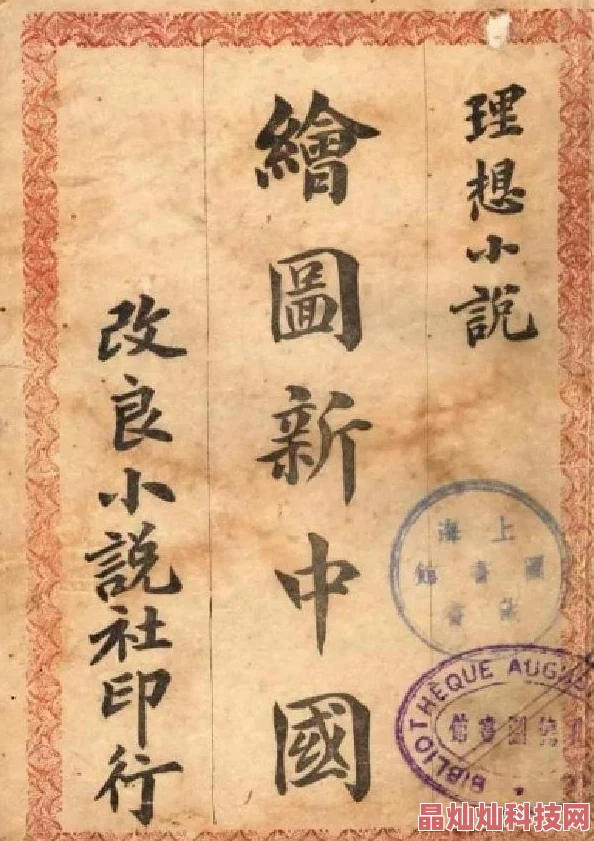 理想小說
繪圖新中國
改良小說社印行
上海
圖書館
藏書
BIBLIOTHÈQUE AUG
書館
晶灿灿科技网